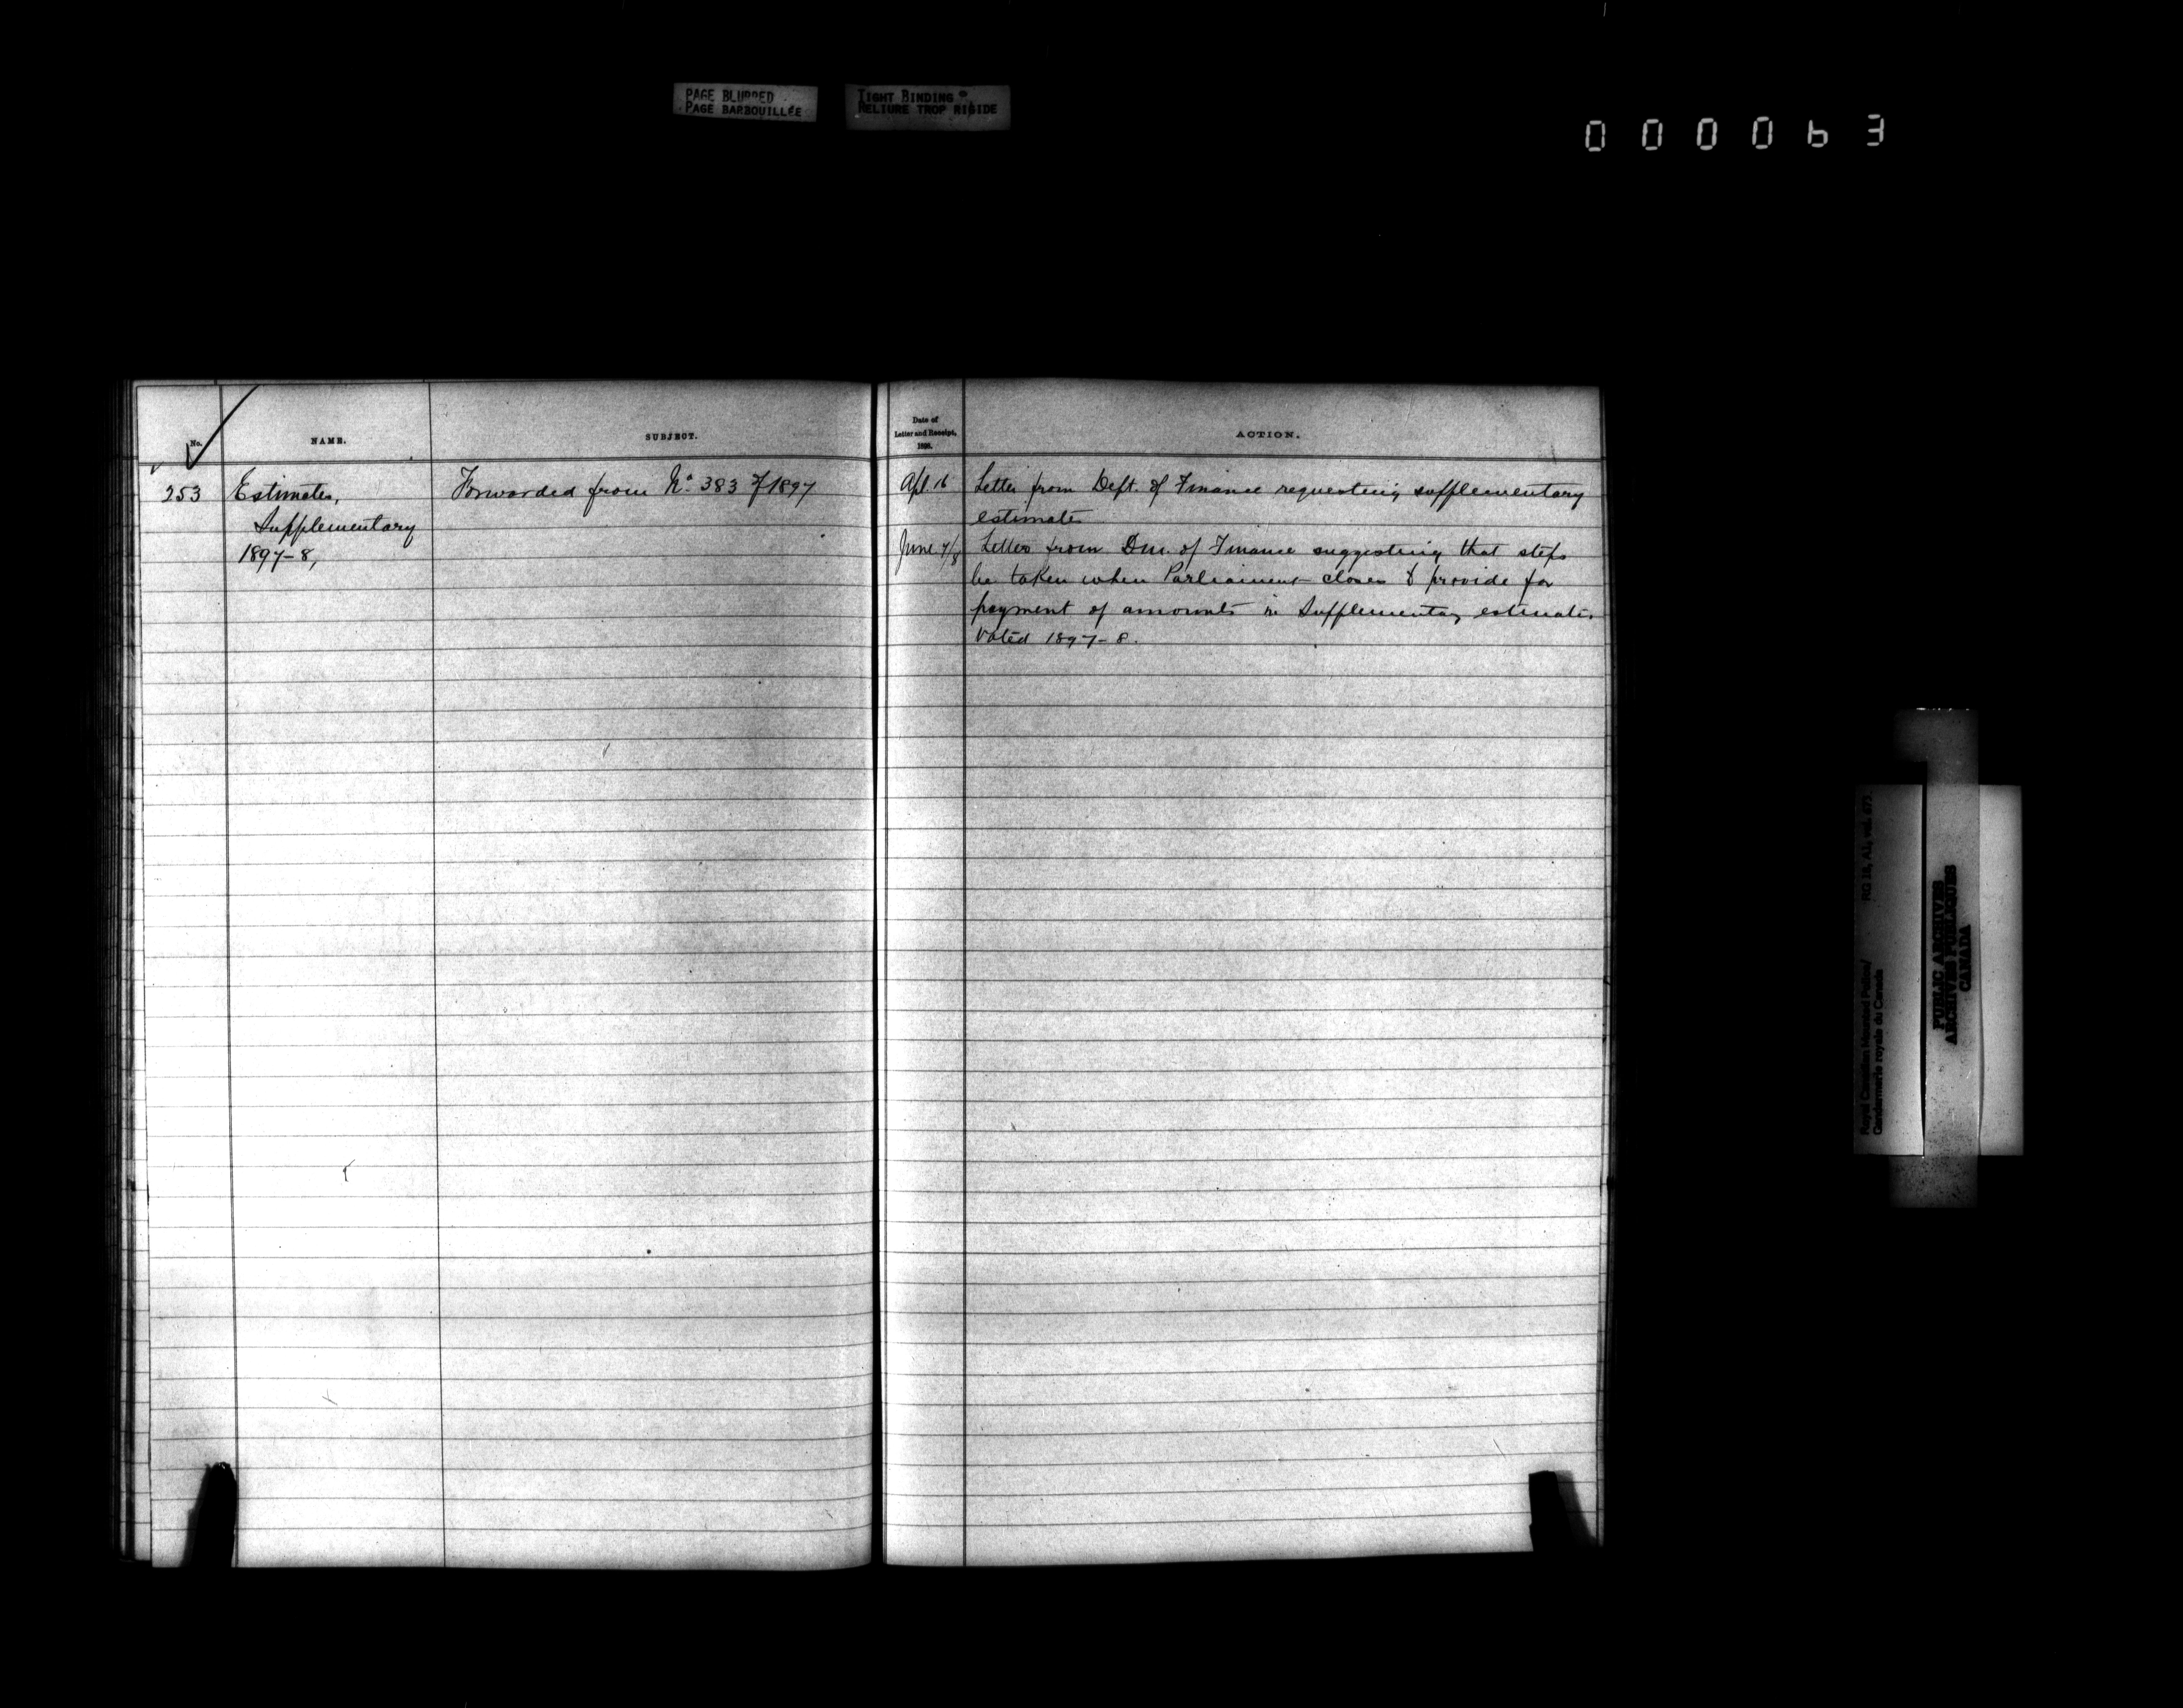 PAGE BLURRED
PAGE BARBOUILLÉE
TIGHT BINDING
RELIURE TROP RIGIDE
000063
No.
NAME.
SUBJECT.
Date of
Letter and Receipt,
1898.
ACTION.
253
Estimates,
Supplementary
1897-8,
Forwarded from No. 383 of 1897
Apl. 16
Letter from Dept. of Finance requesting supplementary
estimates
June 7/8
Letter from Dm. of Finance suggesting that steps
be taken when Parliament closes to provide for
payment of amounts in Supplementary estimates
Voted 1897-8.
Royal Canadian Mounted Police/
Gendarmerie royale du Canada
RG 18, A1, vol.
PUBLIC ARCHIVES
ARCHIVES PUBLIQUES
CANADA